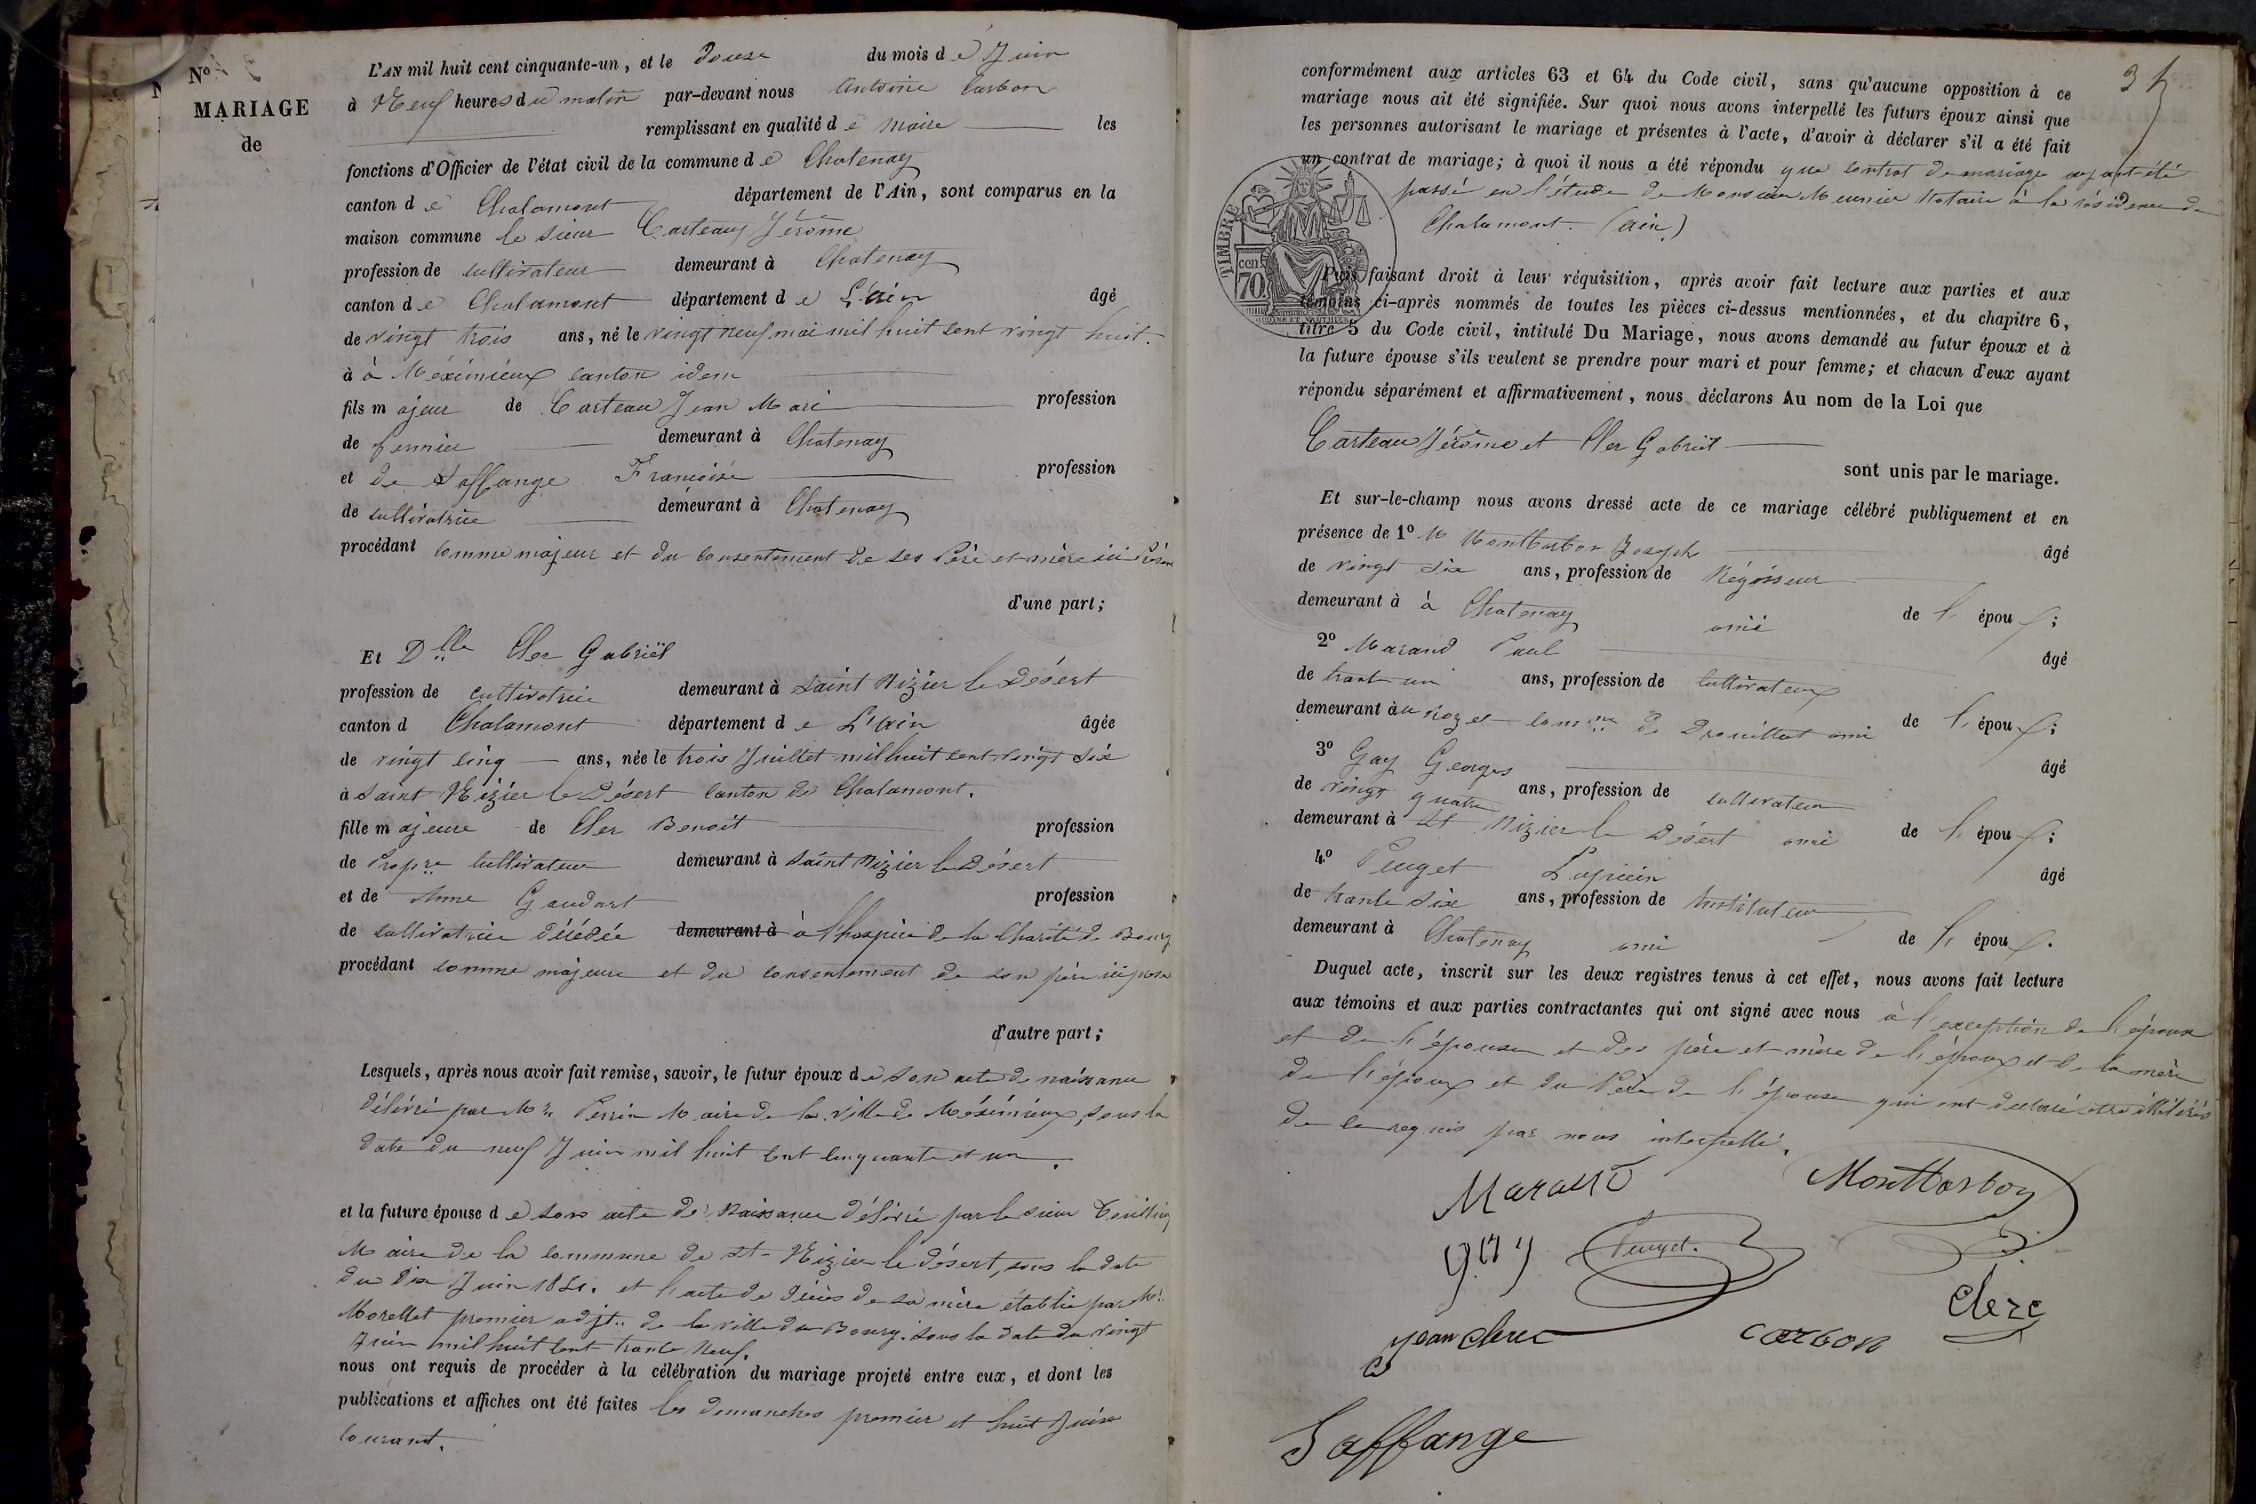 N°
MARIAGE
de
L'AN mil huit cent cinquante-un, et le Douze du mois d e Juin
à Neuf heures du matin par-devant nous Antoine Carbon
remplissant en qualité d e Maire les
fonctions d'Officier de l'état civil de la commune d e Chatenay
canton d e Chalamont département de l'Ain, sont comparus en la
maison commune le sieur Carteaux Jérôme
profession de cultivateur demeurant à Chatenay
canton d e Chalamont département d e L'ain âgé
de vingt trois ans, né le vingt neuf mai mil huit cent vingt huit.
à à Méximieux canton idem
fils m ajeur de Carteau Jean Marie profession
de fermier demeurant à Chatenay
et de Saffange Francoise profession
de cultivatrice demeurant à Chatenay
procédant comme majeur et du consentement de ses Père et mère ici
d'une part;
Et Dlle Cler Gabriël
profession de cultivatrice demeurant à Saint Nizier le Désert
canton d Chalamont département d e L'ain âgée
de vingt cinq ans, née le trois Juillet mil huit cent vingt six
à Saint Nizier le Désert canton de Chalamont.
fille m ajeure de Cler Benoit profession
de Propre cultivateur demeurant à Saint Nizier le Désert
et de Anne Gaudart profession
de cultivatrice décédée demeurant à à l'hospice de la Charité de Bourg
procédant comme majeure et du consentement de son père ici
d'autre part;
Lesquels, après nous avoir fait remise, savoir, le futur époux d e son acte de naissance
délivré par Mr Perrin Maire de la ville de Méximieux, sous la
date du neuf Juin mil huit cent cinquante et un.
et la future épouse d e son acte de Naissance délivré par le sieur
Maire de la commune de St-Nizier le désert, sous la date
du Dix Juin 1851. et l'acte de décès de sa mère établie par Mr
Morellet premier adjt de la ville du Bourg. sous la date du vingt
Juin mil huit cent trente Neuf.
nous ont requis de procéder à la célébration du mariage projeté entre eux, et dont les
publications et affiches ont été faites les demanches premier et huit Juin
courant.
conformément aux articles 63 et 64 du Code civil, sans qu'aucune opposition à ce
mariage nous ait été signifiée. Sur quoi nous avons interpellé les futurs époux ainsi que
les personnes autorisant le mariage et présentes à l'acte, d'avoir à déclarer s'il a été fait
un contrat de mariage; à quoi il nous a été répondu que contrat de mariage ayant été
passé en l'étude de Monsieur Meunier Notaire à la résidence de
Chalamont. (ain)
TIMBRE
cen
70
Puis faisant droit à leur réquisition, après avoir fait lecture aux parties et aux
témoins ci-après nommés de toutes les pièces ci-dessus mentionnées, et du chapitre 6,
titre 5 du Code civil, intitulé Du Mariage, nous avons demandé au futur époux et à
la future épouse s'ils veulent se prendre pour mari et pour femme; et chacun d'eux ayant
répondu séparément et affirmativement, nous déclarons Au nom de la Loi que
Carteau Jérôme et Cler Gabriël
sont unis par le mariage.
Et sur-le-champ nous avons dressé acte de ce mariage célébré publiquement et en
présence de 1° M Montbarbon Joseph âgé
de vingt six ans, profession de Régisseur
demeurant à à Chatenay ami de l' épou x;
2° Marand Paul âgé
de trante un ans, profession de cultivateur
demeurant à de Drouillat ami de l' épou x;
3° Gay Georges âgé
de vingt quatre ans, profession de cultivateur
demeurant à St Nizier le Désert ami de l' épou x;
4° Peuget âgé
de trante six ans, profession de Instituteur
demeurant à Chatenay ami de l' épou x.
Duquel acte, inscrit sur les deux registres tenus à cet effet, nous avons fait lecture
aux témoins et aux parties contractantes qui ont signé avec nous à l'exception de l'époux
et de l'épouse et des père et mère de l'époux et de la mère
de l'époux et du Père de l'épouse qui ont declaré etre illitérés
de ce requis par nous interpellé.
Marand Montbarbon
gay Peuget.
Clerc
jean clerc carbon
Saffange